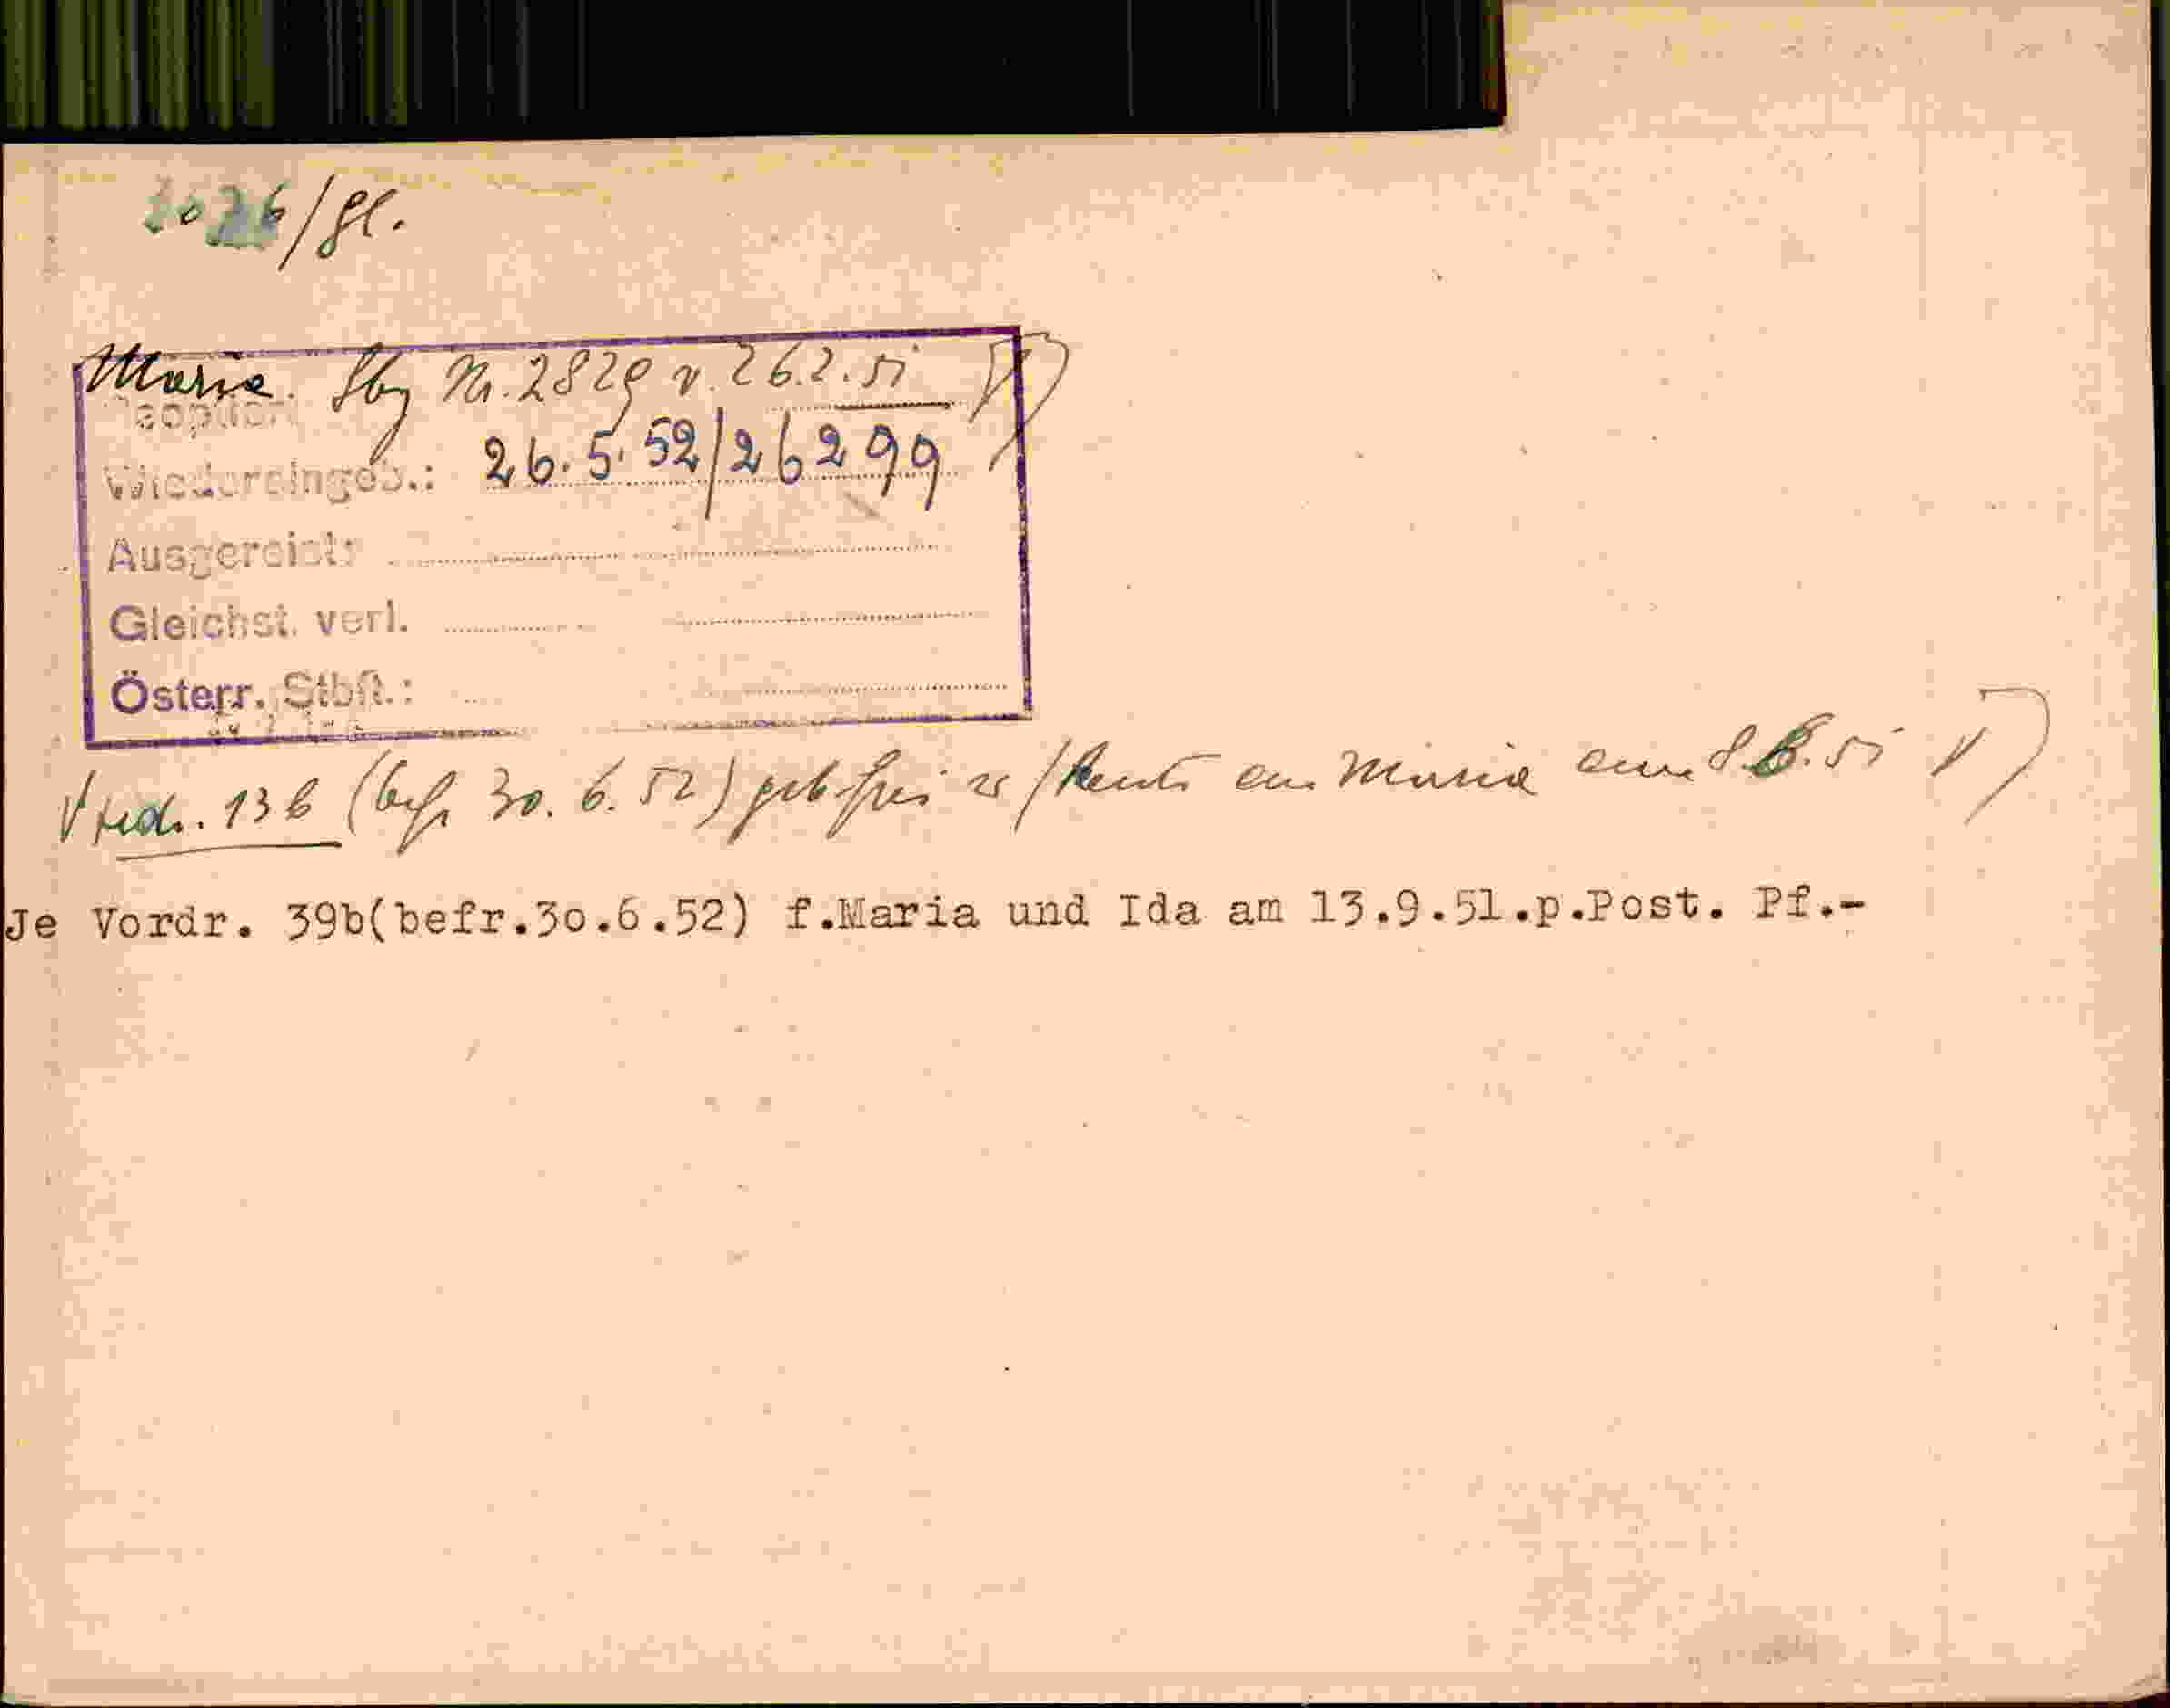 2026/Gl.
Maria. Stbg Nr. 2829 v. 26.2.51
Wiedereingeb.: 26.5.52/26299
Ausgereist:
Gleichst. verl.
Österr. Stbft.:
Vordr. 13b (befr 30.6.52) geb frei an Maria am 8.8.51
Je Vordr. 39b(befr.30.6.52) f.Maria und Ida am 13.9.51.p.Post. Pf.-